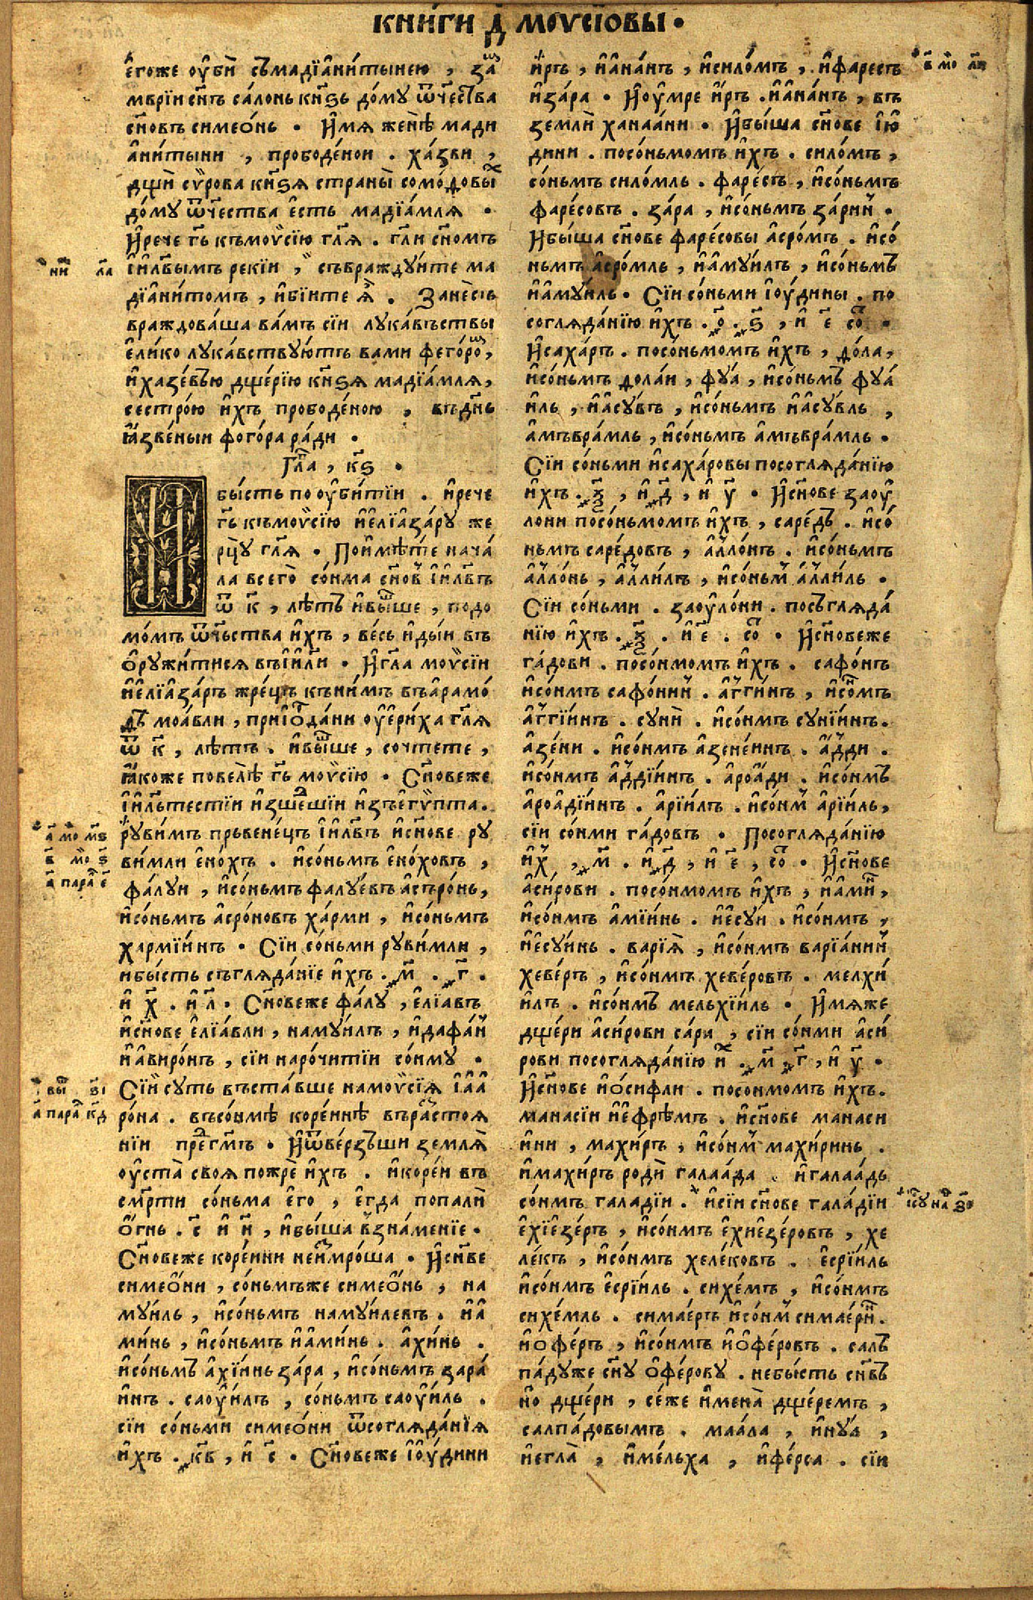 КНИ́ГИ Д҃ МОѴСЇ́ОВЫ ·
е҆гоже оу҆бѝ съмадїа҆ни́тынею , за
мврїи сн҃ъ са́лонь кн҃ѕь до́му ѿче́ства
сн҃овъ симео́нь · И҆мя женѣ̀ мади
а҆ни́тыни , прободе́нои . ха́зви ,
дщѝ сѵ́рова кн҃ѕя страны̀ сомо́довы
до́му ѿче́ства е҆сть мадїа́мля ·
И҆рече гь҃ къмоѵсїю гл҃я . гл҃и сн҃омъ
і҆и҃лвымъ рекїи , съвражду́ите ма
дїа҆ни́томъ , и҆бїи́те я҆̀ . Зане́сїь
враждова́ша ва́мъ сїи лука́вьствы
е҆ли́ко лука́вствую́тъ вами фего́ро ,
и҆хазе́вью дще́рїю кн҃ѕя мадїа́мля ,
сестро́ю и҆́хъ прободе́ною , въдн҃ь
ꙗ҆́звеныи фого́ра ра́ди ·
Гла , к҃ѕ ·
И бы́сть по оу҆би́тїи . и҆рече
гь҃ къмоѵсїю и҆е҆лїа҆за́ру же
рцу̀ гл҃я · Поимѣ́те нача́
ла всего̀ со́нма сн҃овъ і҆и҃лвъ
ѿ к҃ , лѣ́тъ и҆вы́ше , подо
мо́мъ ѿче́ства и҆́хъ , ве́сь и҆ды́и въ
о҆ружи́тися въі҆и҃ли · И҆гл҃а моѵсїи
и҆е҆лїа҆за́ръ жре́цъ къни́мъ въа҆рамо́
дъ моа́вли , прио҆рда́ни оу҆ери́ха гл҃я
ѿ к҃ , лѣтъ . и҆вы́ше , сочте́те ,
ꙗ҆́коже повелѣ̀ гь҃ моѵсїю · Сн҃овеже
і҆и҃льтестїи и҆зше́дшїи и҆зъе҆гѵ́пта .
рѹви́мъ прьвене́цъ і҆и҃лвъ и҆сн҃ове ру
ви́мли е҆но́хъ . и҆со́ньмъ е҆но́ховъ ,
фа́луи , и҆со́ньмъ фалуе́въ а҆съро́нь ,
и҆со́ньмъ а҆сро́новъ ха́рми , и҆со́ньмъ
хармїи́нъ · Сїи со́ньми руви́мли ,
и҆бы́сть съгляда́нїе и҆́хъ . м҃ . г҃ .
и҆ х҃ . и҆ л҃ · Сн҃овеже фалу́ , е҆лїа́въ
и҆сн҃ове е҆лїа́вли , наму́илъ , и҆дафа́н
и҆а҆виро́нъ , сїи наро́читїи со́нму ·
Сїи су́ть въста́вше намоѵсїя і҆а҆а҆
ро́на . въсо́нмѣ коре́инѣ върастоя
нїи пре́гмъ · И҆ѿве́рзъши земля̀
оу҆ста̀ своя пожрѐ и҆́хъ . и҆коре́и въ
смр҃ти со́ньма е҆го , е҆гда попалѝ
о҆́гнь . с҃ и҆ н҃ , и҆бы́ша взна́менїе ·
Сн҃овеже коре́ини неи҆змро́ша · И҆сн҃ве
симео́ни , со́ньмъже симео́нь , на
му́иль , и҆со́ньмъ наму́илевъ . и҆а҆
ми́нь , и҆со́ньмъ и҆а҆ми́нь . а҆хи́нь .
и҆со́ньмъ а҆хїи́нь за́ра , и҆со́ньмъ зара́
и҆нъ . саоу҆́илъ , со́ньмъ саоу҆́иль .
сїи со́ньми симео́ни ѿсогляда́нїя
и҆́хъ . к҃в , и҆ с҃ · Сн҃овеже і҆оу́дини
и҆́ръ , и҆а҆на́нъ , и҆сило́мъ , и҆фаре́съ
и҆за́ра · И҆оу҆мре и҆́ръ . и҆а҆на́нъ , въ
землѝ ханаа́ни · И҆бы́ша сн҃ове і҆ю́
дини . посо́ньмомъ и҆́хъ . сило́мъ ,
со́ньмъ сило́мль . фаре́съ , и҆со́ньмъ
фаре́совъ . за́ра , и҆со́ньмъ за́рии ·
И҆бы́ша сн҃ове фаре́совы а҆сро́мъ . и҆со́
ньмъ а҆сро́мль , и҆а҆му́илъ , и҆со́ньмъ
и҆а҆му́иль · Сїи со́ньми і҆оу́дины . по
согляда́нїю и҆́хъ . о҃ . ѕ҃ , и҆ е҃ со ·
И҆саха́ръ . посо́ньмомъ и҆́хъ , до́ла ,
и҆со́ньмъ дола́и , фуа́ , и҆со́ньмъ фуа́
иль , и҆а҆су́въ , и҆со́ньмъ и҆а҆су́вль ,
а҆мъвра́мль , и҆со́ньмъ а҆мъвра́мль ·
Сїи со́ньми и҆саха́ровы посогляда́нїю
и҆́хъ . ѯ҃ , и҆ д҃ , и҆ у҃ · И҆сн҃ове заоу҆
лони посо́ньмомъ и҆́хъ , саре́дъ . и҆со́
ньмъ саре́довъ , а҆лло́нъ . и҆со́ньмъ
а҆лло́нь , а҆лли́лъ , и҆со́ньмъ а҆лли́ль ·
Сїи со́ньми . заоу҆ло́ни . посъгляда́
нїю и҆́хъ . ѯ҃ . и҆ е҃ . со · И҆сн҃овеже
га́дови . посо́нмомъ и҆́хъ . сафо́нъ
и҆со́нмъ сафо́нии . а҆гги́нъ , и҆со́нмъ
а҆ггїи́нъ . сунѝ . и҆со́нмъ сунїи́нъ .
а҆зе́ни . и҆со́нмъ а҆зене́инъ . а҆́дди .
и҆со́нмъ а҆ддїи́нъ . а҆роа́ди . и҆со́нмъ
а҆роадїи́нъ . а҆рїи́лъ . и҆со́нмъ а҆рїи́ль ,
сїи со́нми га́довъ · Посогляда́нїю
и҆́хъ , м҃ . и҆ д҃ , и҆ е҃ , со · И҆сн҃ове
а҆си́рови . посо́нмомъ и҆́хъ , и҆а҆ми́н ,
и҆со́нмъ а҆мїи́нь . и҆е҆су́и . и҆со́нмъ ,
и҆е҆су́инь . варїя̀ , и҆со́нмъ варїа́нии
хеве́ръ , и҆со́нмъ хеве́ровъ . мелхи́
и҆лъ . и҆со́нмъ мельхїи́ль · И҆мяже
дще́ри а҆си́рови са́ра , сїи со́нми а҆си́
рови посогляда́нїю и҆х . м҃ . г҃ , и҆ у҃ ·
И҆сн҃ове и҆о́сифли . посо́нмомъ и҆́хъ .
манасїи и҆е҆фре́мъ . и҆сн҃ове манаси
и҆ни , махи́ръ , и҆со́нмъ махи́ринь .
и҆махи́ръ родѝ галаа́да . и҆галаа́дь
со́нмъ галадїи . и҆сїи сн҃ове галадїи
е҆хїе҆зе́ръ , и҆со́нмъ е҆хие҆зе́ровъ , хе
ле́къ , и҆со́нмъ хеле́ковъ . е҆срїи́ль
и҆со́нмъ е҆срїи́ль . сихе́мъ , и҆со́нмъ
сихе́мль . симае́ръ и҆со́нмъ симае́рин .
и҆о҆фе́ръ , и҆со́нмъ и҆о҆фе́ровъ . салъ
па́дуже сн҃у о҆фе́рову . небы́сть сн҃въ
но̀ дще́ри , се́же и҆мена̀ дще́ремъ ,
салпа́довымъ . маа́ла , и҆нуа́ ,
и҆егла̀ , и҆ме́льха , и҆фе́рса . сїи